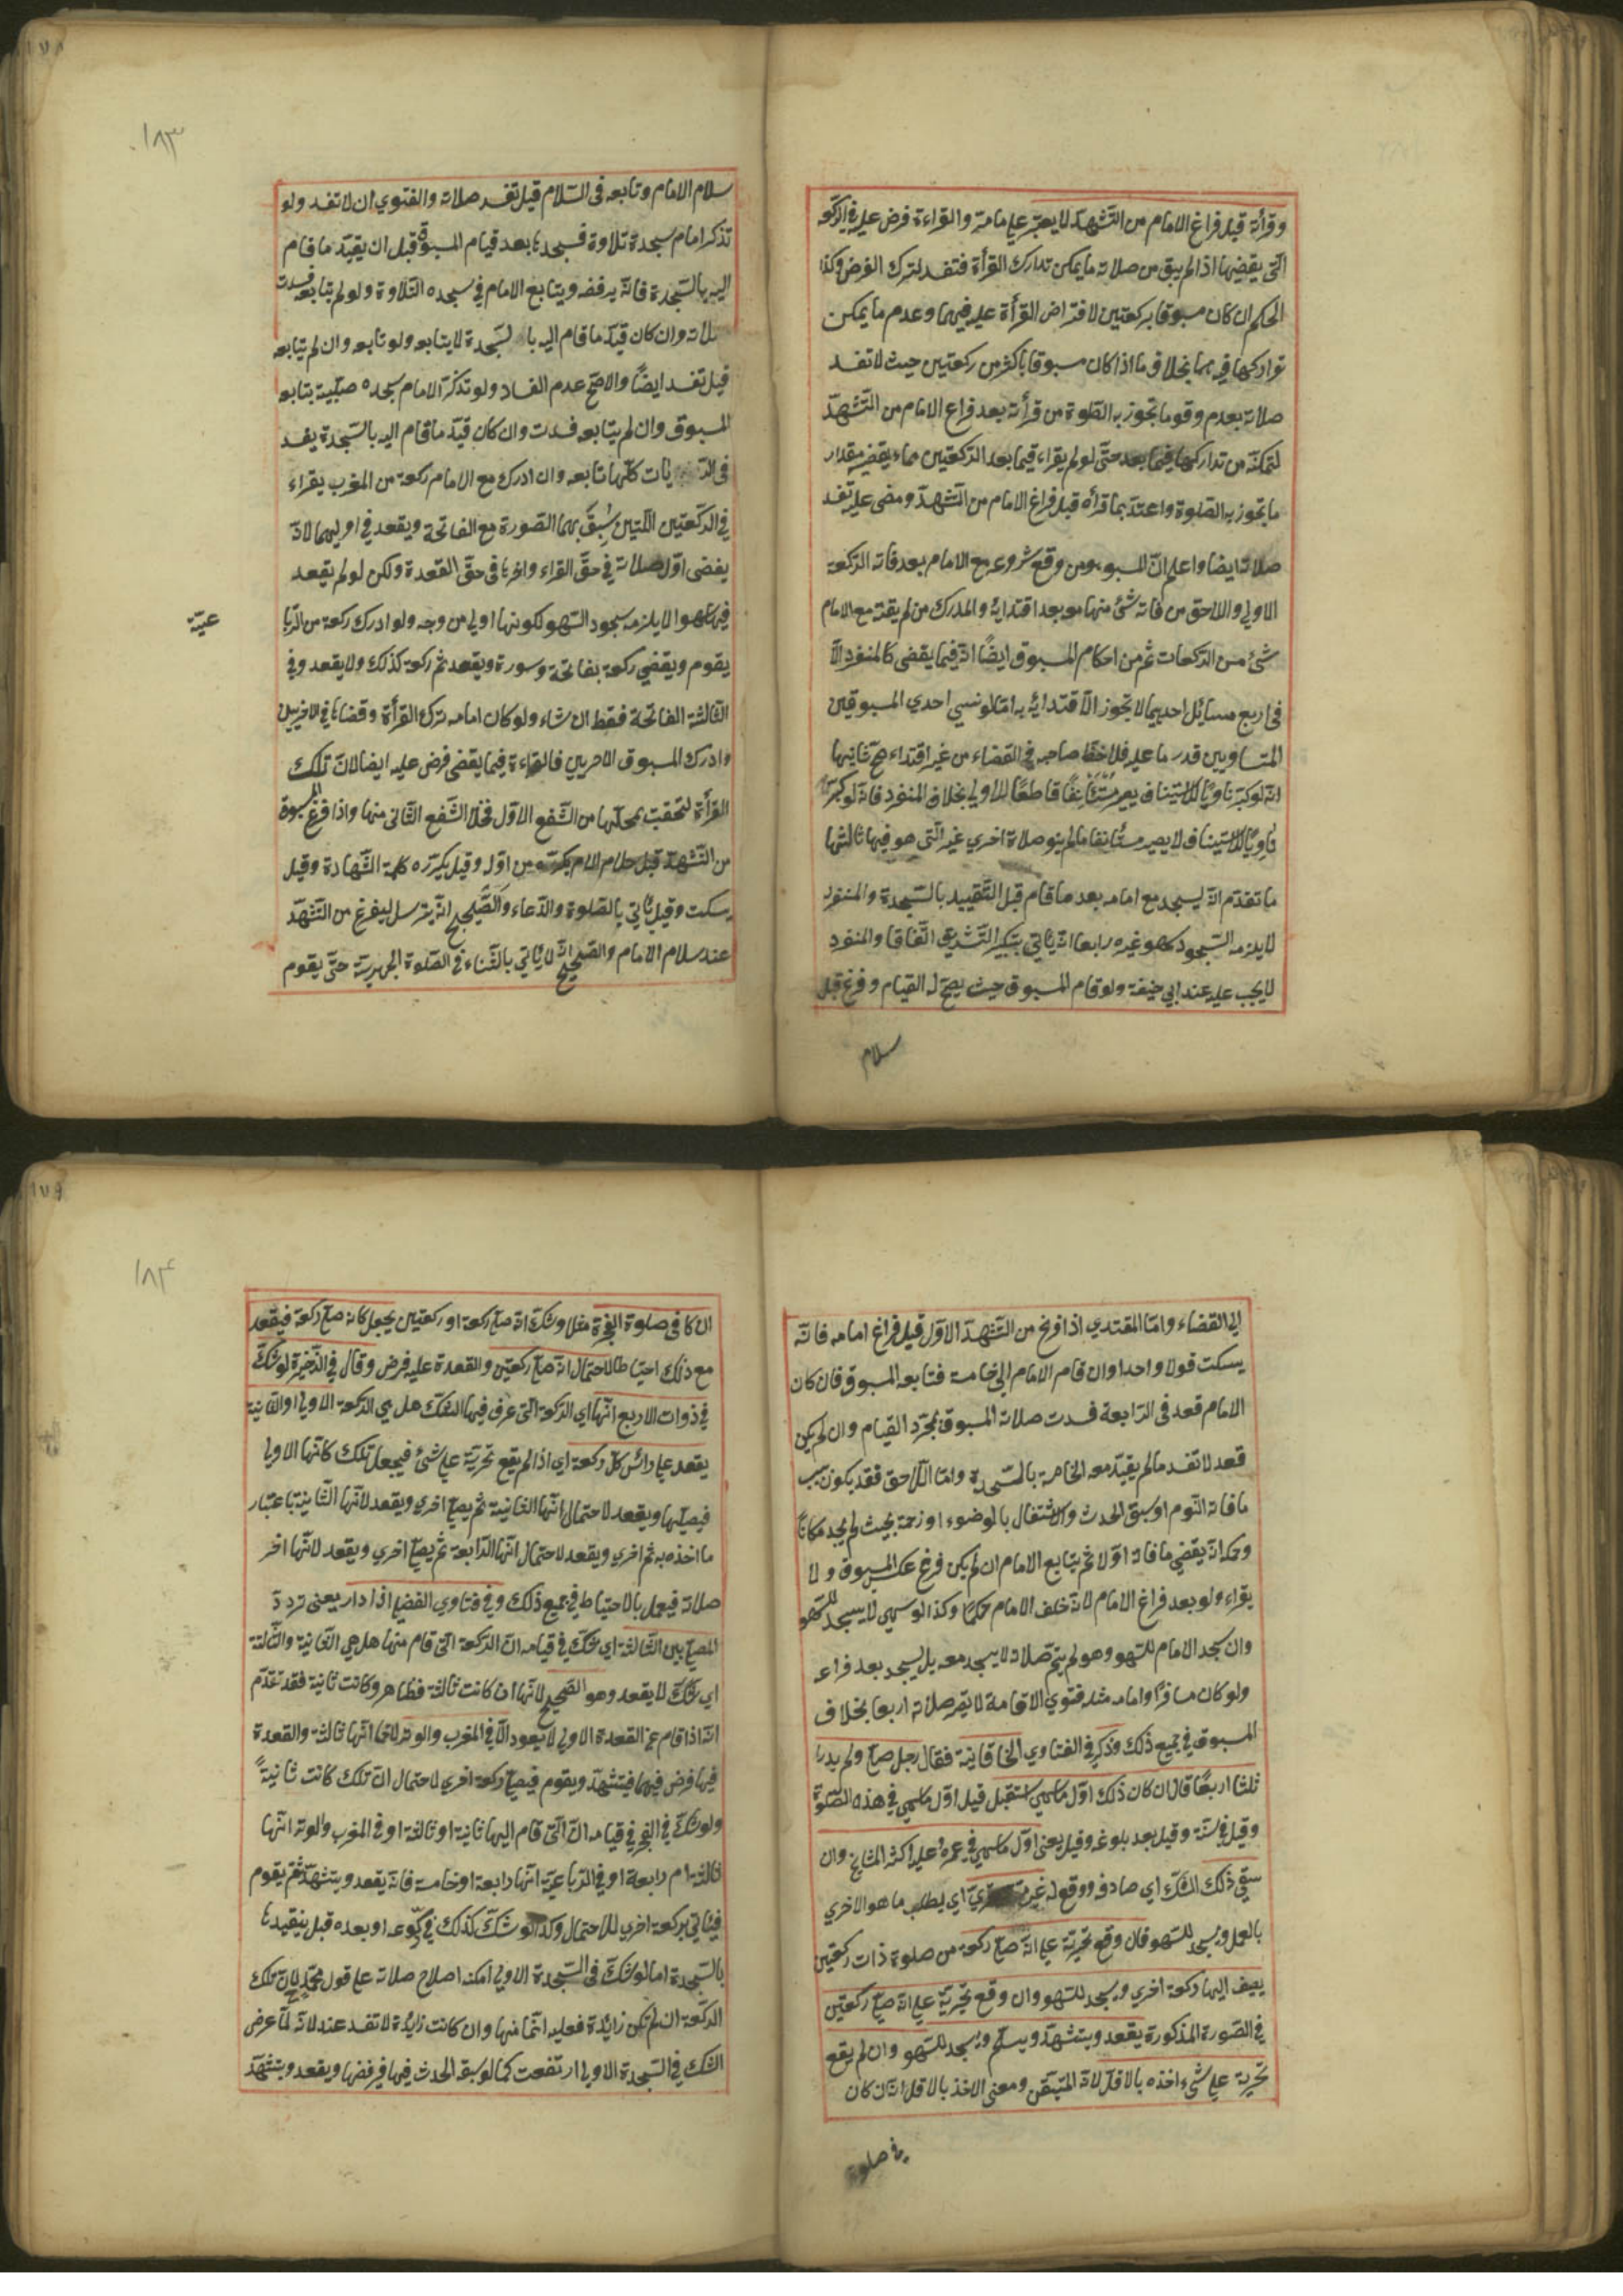 وقرأته قبل فراغ الامام من التشهد لا يعتبر على مامر والقراءة فرض عليه في الركعة
التي يقضيها اذا لم يبق من صلاته ما يمكن تدارك القرأة فتفسد لترك الفرض وكذا
الحكم ان كان مسبوقا بركعتين لافتراض القرأة عليه فيهما وعدم ما يمكن
تداركها فيه بخلاف ما اذا كان مسبوقا باكثر من ركعتين حيث لا تفسد
صلاته بعدم وقوع ما تجوز به الصلوة من قرأته بعد فراغ الامام من التشهد
لتمكنه من تداركها فيما بعد حتى لو لم يقراء فيما بعد الركعتين مما يقضي مقدار
ما تجوز به الصلوة واعتد بما قرأه قبل فراغ الامام من التشهد ومضى عليه تفسد
صلاته ايضا واعلم ان المسبوق من وقع شروعه مع الامام بعد فاته الركعة
الاولى واللاحق من فاته شئ منها بعد اقتدايه والمدرك من لم يفته مع الامام
شئ من الركعات ثم من احكام المسبوق ايضًا انه فيما يقضي كالمنفرد الا
في اربع مسائل احديها لا تجوز الاقتدائه به اما لو نسي احدي المسبوقين
المتساويين قدر ما عليه فلاحظ صاحبه في القضاء من غير اقتداء صح ثانيها
انه لو كبر ناويًا للاستيناف يصير مستأنفًا قاطعًا للاولى بخلاف المنفرد فانه لو كبر
ناويًا للاستيناف لا يصير مستأنفا ما لم ينو صلاة اخري غير التي هو فيها ثالثها
ما تقدم انه يسجد مع امامه بعد ما قام قبل التقييد بالسجدة والمنفرد
لا يلزمه السجود لسهو غيره رابعا انه يأتي بتكبير التشريق اتفاقا والمنفرد
لا يجب عليه عند ابي حنيفة ولو قام المسبوق حيث يصح له القيام وفرغ قبل
سلام
١٨٣
سلام الامام وتابعه في السلام قيل تفسد صلاته والفتوي ان لا تفسد ولو
تذكر امام سجدة تلاوة فسجدها بعد قيام المسبوق قبل ان يقيد ما قام
اليه بالسجدة فانه يرفضه ويتابع الامام في سجده التلاوة ولو لم يتابعه فسدت
صلاته وان كان قيد ما قام اليه بالسجدة لا يتابعه ولو تابعه وان لم يتابعه
قيل تفسد ايضًا والاصح عدم الفساد ولو تذكر الامام سجده صلبية يتابعه
المسبوق وان لم يتابعه فسدت وان كان قيد ما قام اليه بالسجدة يفسد
في الروايات كلها تابعه وان ادرك مع الامام ركعة من المغرب يقراء
في الركعتين اللتين سبق بهما الصورة مع الفاتحة ويقعد في اوليهما لانه
يقضى اول صلاته في حق القراء واخرها في حق القعدة ولكن لو لم يقعد
فيها سهوا لا يلزمه سجود السهو لكونها اولى من وجه ولو ادرك ركعة من الربا
عية
يقوم ويقضي ركعة بفاتحة وسورة ويقعد ثم ركعة كذلك ولا يقعد وفي
الثالثة الفاتحة فقط ان شاء ولو كان امامه ترك القرأة وقضاها في الاخريين
وادرك المسبوق الاخريين فالقراءة فيما يقضى فرض عليه ايضا لان تلك
القرأة لتحقت بمحلها من الشفع الاول فخلا الشفع الثاني منها واذا فرغ المسبوق
من التشهد قبل سلام الامام يكرره من اوله وقيل يكرره كلمة الشهادة وقيل
يسكت وقيل ياتي بالصلوة والدعاء والصحيح انه يترسل ليفرغ من التشهد
عند سلام الامام والصحيح انه لا ياتي بالثناء في الصلوة الجهرية حتى يقوم
الي القضاء واما المقتدي اذا فرغ من التشهد الاول قبل فراغ امامه فانه
يسكت قولا واحدا وان قام الامام الى خامسة فتابعه المسبوق فان كان
الامام قعد في الرابعة فسدت صلاته المسبوق بمجرد القيام وان لم يكن
قعد لا تفسد ما لم يقيد معه الخامسة بالسجدة واما اللاحق فقد يكون سبب
ما فاته النوم او سبق الحدث والاشتغال بالوضوء او زحمة بحيث لم يجد مكانًا
وحكمه انه يقضي ما فاته اولا ثم يتابع الامام ان لم يكن فرغ عكس المسبوق ولا
يقراء ولو بعد فراغ الامام لانه خلف الامام حكمًا وكذا لو سهي لا يسجد للسهو
وان سجد الامام للسهو وهو لم يتم صلاته لا يسجد معه بل يسجد بعد فراغه
ولو كان مسافرًا وامامه مثله فنوي الاقامة لا يقر صلاته اربعا بخلاف
المسبوق في جميع ذلك وذكر في الفتاوي الخاقانية فقال رجل صلى ولم يدر ا
ثلثا اربعًا قال ان كان ذلك اول ما سهي استقبل قيل اول ما سهي في هذه الصلوة
وقيل في سنة وقيل بعد بلوغه وقيل يعني اول ما سهي في عمره وعليه اكثر المشايخ وان
سبق ذلك الشك اي صادفه ووقع له غير مرة تحري اي يطلب ما هو الاحري
بالعمل ويسجد للسهو فان وقع تحريه على انه صلى ركعة من صلوة ذات ركعتين
يضيف اليها ركعة اخري ويسجد للسهو وان وقع تحريه على انه صلى ركعتين
في الصورة المذكورة يقعد ويتشهد ويسلم ويسجد للسهو وان لم يقع
تحريه على شيء اخذه بالاقل لانه المتيقن ومعنى الاخذ بالاقل انه ان كان
في صلوة
١٨٤
ان كا في صلوة الفجرة مثلا وشك انه صلى ركعة او ركعتين يجعل كانه صلى ركعة فيقعد
مع ذلك احتياطا لاحتمال انه صلى ركعتين والقعدة عليه فرض وقال في الذخيرة لو شك
في ذوات الاربع انها اي الركعة التي عرف فيها الشك هل هي الركعة الاولى او الثانية
يقعد على رائس كل ركعة اي اذا لم يقع تحريه على شئ فيجعل تلك كانها الاولى
فيصليها ويقعد لاحتمال انها الثانية ثم يصلي اخري ويقعد لانها الثانية باعتبار
ما اخذه به ثم اخري ويقعد لاحتمال انها الرابعة ثم يصلي اخري ويقعد لانها اخر
صلاته فيعمل بالاحتياط في جميع ذلك وفي فتاوي الفضلي اذا دار يعنى تردد
المصلي بين الثالثة اي شك في قيامه ان الركعة التي قام منها هل هي الثانية والثالثة
اي شك لا يقعد وهو الصحيح لانها ان كانت ثالثة فظاهر وكانت ثانية فقد تقدم
انه اذا قام عن القعدة الاولى لا يعود الا في المغرب والوتر لانها ثالثة والقعدة
فيها فرض فيهما فيتشهد ويقوم فيصلي ركعة اخري لاحتمال ان تلك كانت ثانيةً
ولو شك في الفجر في قيامه ان التي قام اليها ثانية او ثالثة او في المغرب والوتر انها
ثالثة ام رابعة او في الرباعية انها رابعة او خامسة فانه يقعد ويتشهد ثم يقوم
فيأتي بركعة اخري للاحتمال وكذا لو شك كذلك في ركوعه او بعده قبل تقيدها
بالسجدة اما لو شك في السجدة الاولى امكنه اصلاح صلاته على قول محمد لان تلك
الركعة ان لم تكن زائدة فعليه اتمامها وان كانت زائدة لا تفسد عنده لانه لما عرض
الشك في السجدة الاولى ارتفعت كما لو سبقه الحدث فيها فيرفضها ويقعد ويتشهد